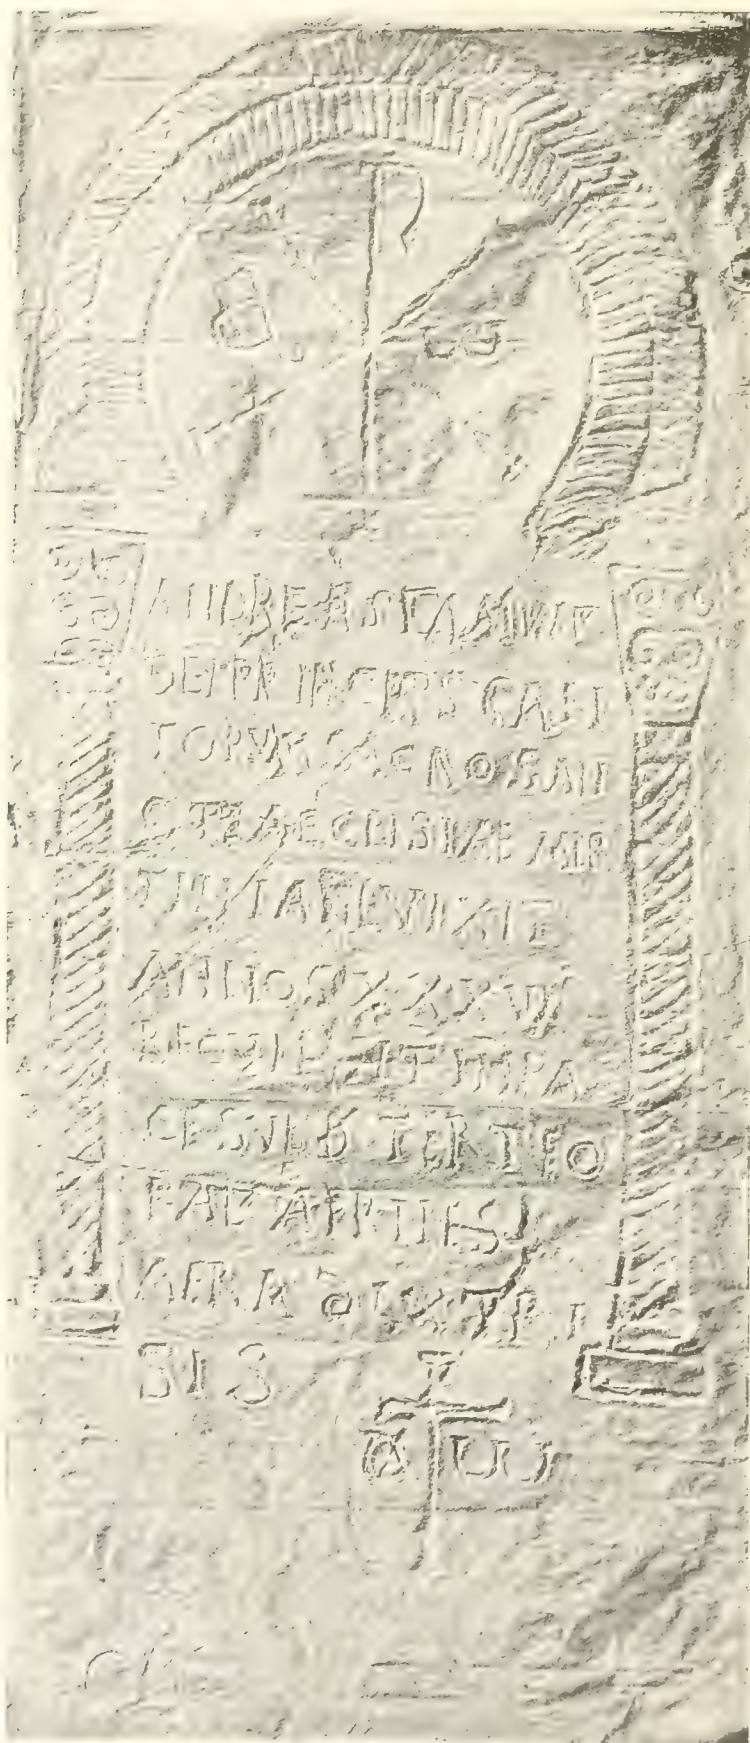 ANDREAS FAMVLVS
DEI PRINCEPS CAN
TORVM SACROSAN
CTE AECLISIAE MER
TILLIANE VIXIT
ANNOS XXXVI
REQVIEVIT IN PA
CE SVB D TERTIO
KAL APRILES
AERA D LX TRI
SIS